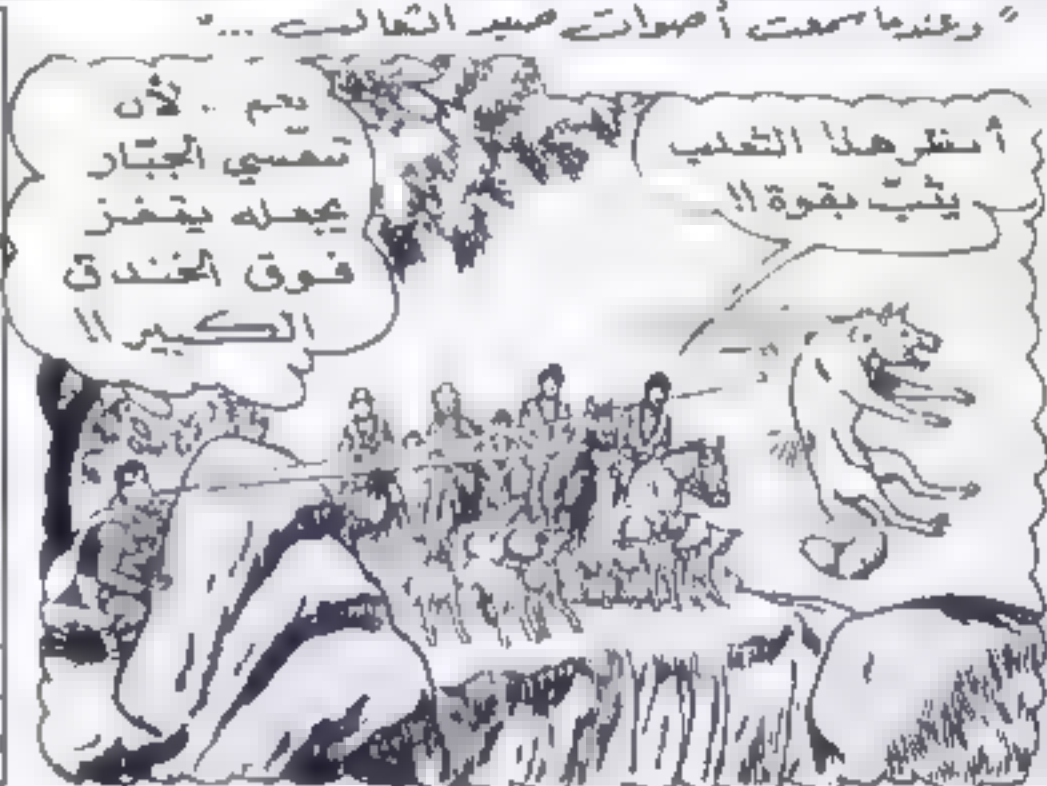 "وعندما سمعت أصوات صيد الثعالب ..."
أنظر هذا الثعلب
يثب بقوة !!
لأن
الجبّار
يجعله يقفز
فوق الخندق
الكبير !!